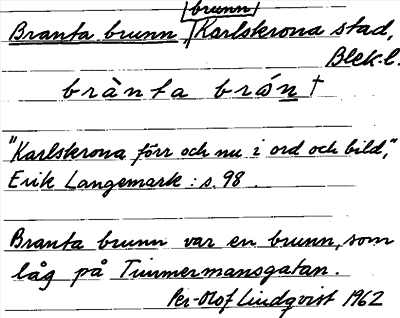 brunn
Branta brunn, Karlskrona stad,
Blek.l.
brànta brón †
"Karlskrona förr och nu i ord och bild,"
Erik Langemark : s. 98.
Branta brunn var en brunn, som
låg på Timmermansgatan.
Per-Olof Lindqvist 1962